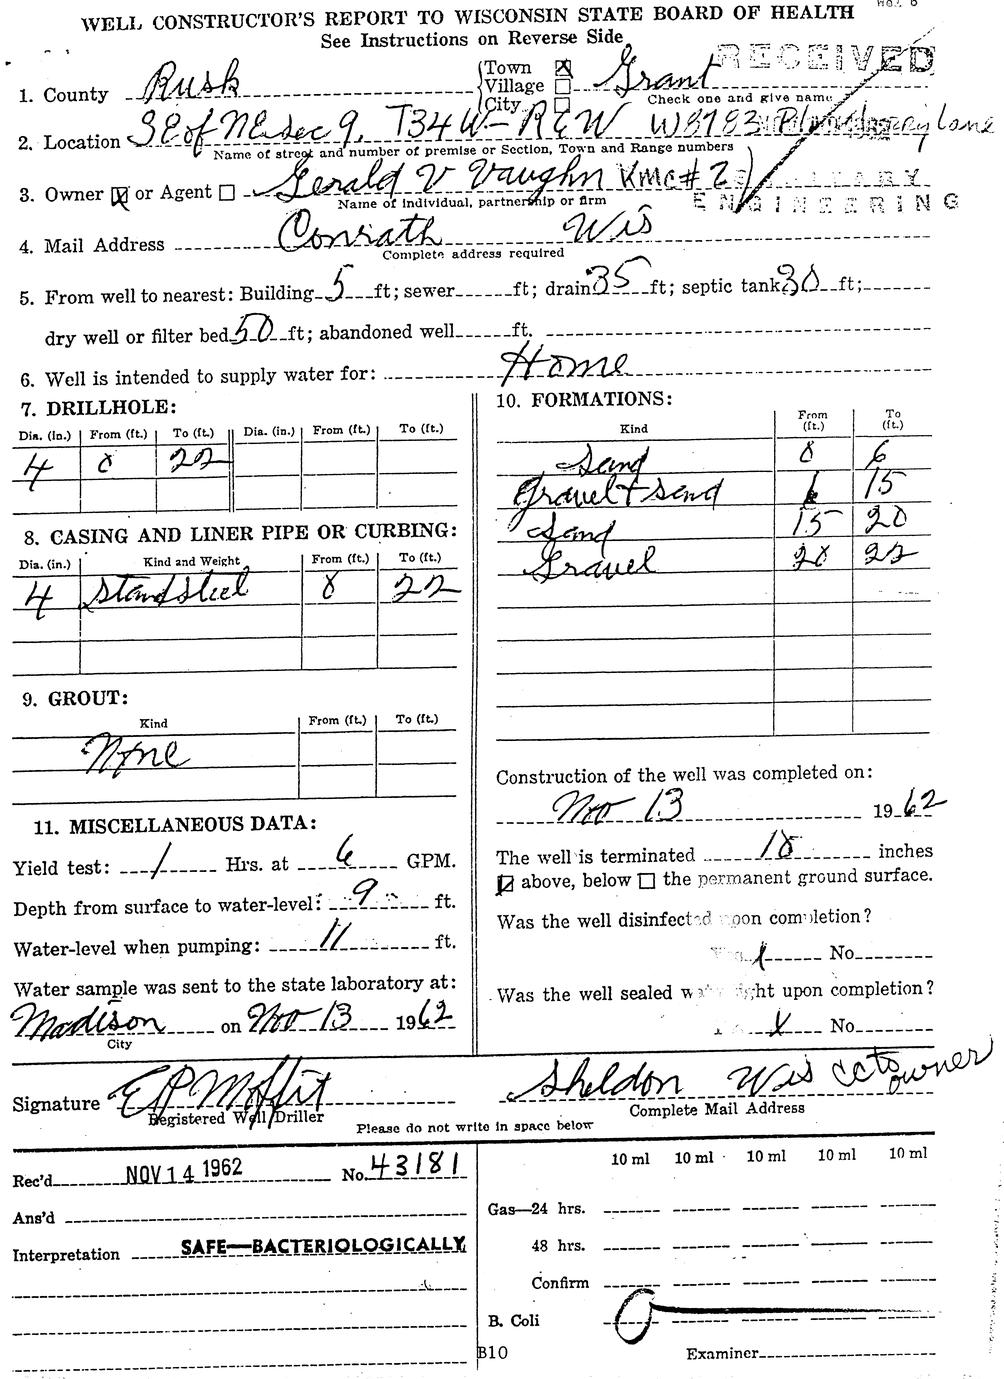 WELL CONSTRUCTOR'S REPORT TO WISCONSIN STATE BOARD OF HEALTH
See Instructions on Reverse Side
RECEIVED
1. County Rusk Town ☒ Village ☐ City ☐ Grant
Check one and give name
2. Location SE of NE Sec 9, T34 W-R6W W8783 Plumberry lane
Name of street and number of premise or Section, Town and Range numbers
3. Owner ☒ or Agent ☐ Gerald V Vaughn KMC#2
Name of individual, partnership or firm
SANITARY
ENGINEERING
4. Mail Address Conrath Wis
Complete address required
5. From well to nearest: Building 5 ft; sewer ft; drain 35 ft; septic tank 30 ft;
dry well or filter bed 50 ft; abandoned well ft.
6. Well is intended to supply water for: Home
7. DRILLHOLE:
Dia. (in.) From (ft.) To (ft.) Dia. (in.) From (ft.) To (ft.)
4 0 22
8. CASING AND LINER PIPE OR CURBING:
Dia. (in.) Kind and Weight From (ft.) To (ft.)
4 Stand Steel 0 22
9. GROUT:
Kind From (ft.) To (ft.)
None
10. FORMATIONS:
Kind From (ft.) To (ft.)
Sand 0 6
Gravel + sand 6 15
Sand 15 20
Gravel 20 22
Construction of the well was completed on:
Nov 13 1962
The well is terminated 18 inches
☑ above, below ☐ the permanent ground surface.
Was the well disinfected upon completion?
Yes x No
Was the well sealed watertight upon completion?
Yes x No
11. MISCELLANEOUS DATA:
Yield test: 1 Hrs. at 6 GPM.
Depth from surface to water-level: 9 ft.
Water-level when pumping: 11 ft.
Water sample was sent to the state laboratory at:
Madison on Nov 13 1962
City
Signature E P Moffit Sheldon Wis cc to owner
Registered Well Driller Complete Mail Address
Please do not write in space below
Rec'd NOV 14 1962 No. 43181
Ans'd
Interpretation SAFE—BACTERIOLOGICALLY
10 ml 10 ml 10 ml 10 ml 10 ml
Gas—24 hrs.
48 hrs.
Confirm
B. Coli 0
B10
Examiner